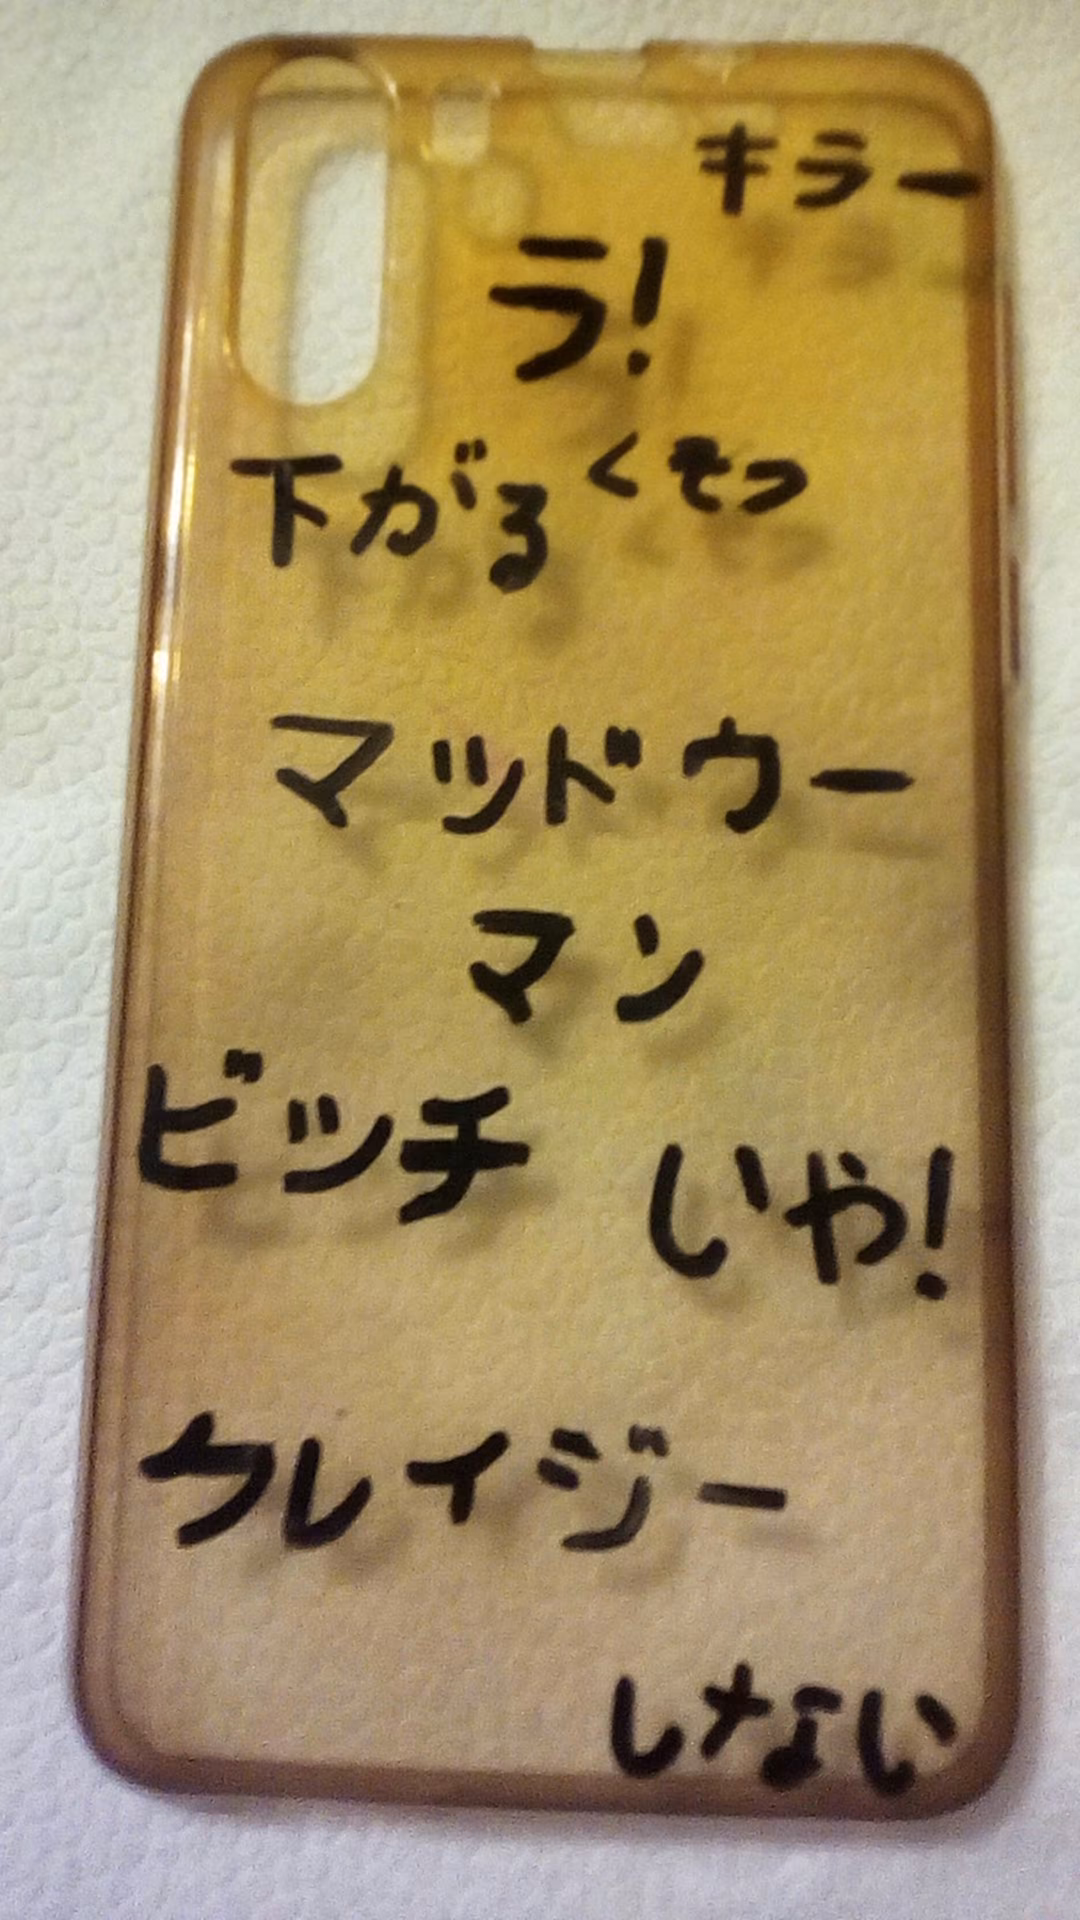 キラー
ラ!
下がる くそっ
マッドウー
マン
ビッチ いや!
クレイジー
しない